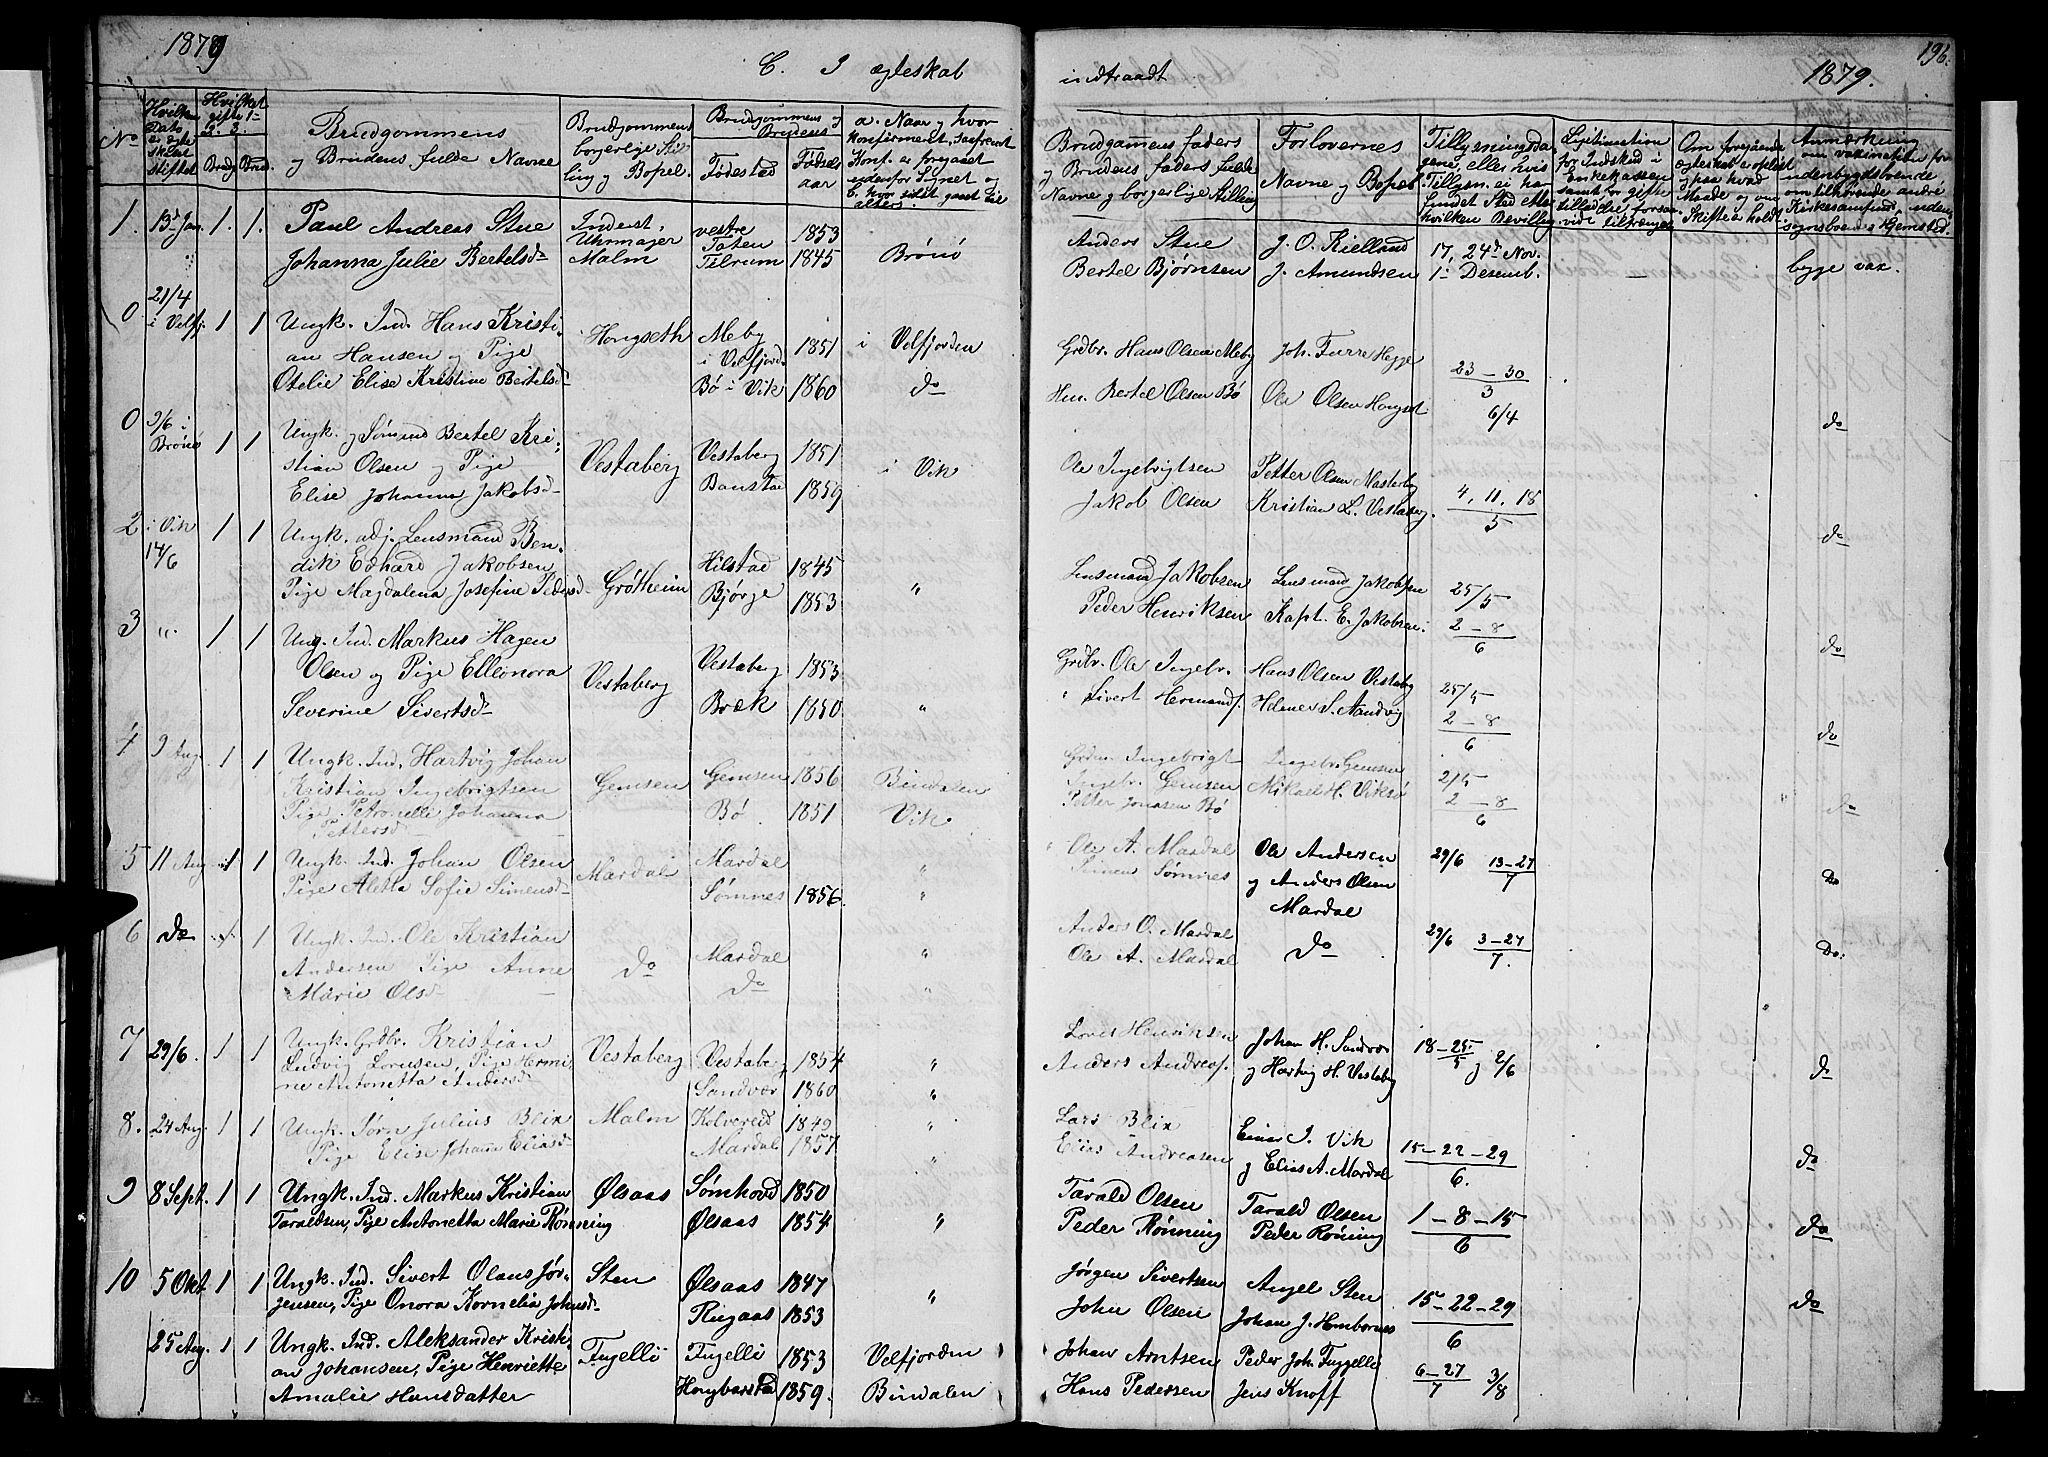 1879
C. I ægteskab
indtraadt
1879.
196.
No
Hvilken Dato er ægteskabet stiftet
Hvilket gifte 1- 2- 3.
Brudg. Brud.
Brudgommens
og Brudens fulde Navne
Brudgommens borgerlige Stilling og Bopel.
Brudgommens og Brudens
Fødested
Fødselsaar
a. Naar og hvor konfirmeret, saafremt Konf. er foregaaet udenfor Sognet og b. hvor sidst gaaet til alters.
Brudgommens faders og Brudens faders fulde Navne og borgerlige Stilling
Forlovernes
Navne og Bopel.
Tillysningsdagene, eller hvis Tillysn. ei har fundet Sted efter hvilken Bevilling
Legitimation for Indskud i Enkekassen samt for giftetilladelse forsaavidt tiltrænges
Om foregaaende ægteskab er opløst og paa hvad Maade og om Skifte er holdt
Anmærkning om vaksination for udenbygdsboende
1. 13de Jan. 1. 1. Paul Andreas Stue Inderst, Uhrmager Malm vestre Toten 1853 Anders Stue J. O. Kielland 17, 24de Nov.
Johanna Julie Bertelsd- Tilrum 1845 Brønø Bertel Bjørnsen J. Amundsen 1- Desemb. — bygge vax.
0 21/4 i Velfj. 1 1 Ungk. Ind. Hans Kristian Hansen og Pige Hongseth Meby i Velfjord 1851 i Velfjorden Grdbr. Hans Olsen Meby Joh. Furre Hegge 23 - 30 / 3
Otelie Elise Kristine Bertelsd- Bø i Vik 1860 do Bertel Olsen Bø Ole Olsen Hongset 6/4 do
0 i Brønø 1 1 Ungk. og Sømand Bertel Kristian Olsen og Pige Vestaberg Vestaberg 1851 i Vik Ole Ingebrigtsen Petter Olsen
Elise Johanna Jakobsd- 1859 Jakob Olsen Kristian L. Vestaberg. 4, 11, 18 / 5 do
2 i Vik 14/6 1 1 Ungk. adj. Lensmand Bendik Edhard Jakobsen Grøtheim Hilstad 1845 Lensmand Jakobsen Lensmand Jakobsen 25/5
Pige Magdalena Josefine Pedersd- Bjørge 1853 " Peder Henriksen Kapt. E. Jakobsen 2 - 8 / 6 do
3 " 1 1 Ung. Ind. Markus Hagen Olsen og Pige Elleonora Vestaberg Vestaberg 1853 Grdbr. Ole Ingebr. Hans Olsen Vestaberg 25/5
Severine Sivertsd- Bræk 1850 " " Sivert Hermands. 2 - 8 / 6 do
4 9 Aug. 1 1 Ungk. Ind. Hartvig Johan Kristian Ingebrigtsen Gemsen Gemsen 1856 Bindalen Ingebrigt Ingebr. Gemsen Ingebr. Gemsen
Pige Petronelle Johanna Pettersd- Bø 1851 Vik Petter Jonasen Bø Mikael H. Viksø 2 - 8 / 6 do
5 11 Aug. 1 1 Ungk. Ind. Johan Olsen Mardal Mardal " " Ole A. Mardal Ole Andersen 29/6 13 - 27 / 7
Pige Aletta Sofie Simensd- Sømnes 1856 " Simen Sømnes og Anders Olsen Mardal Do
6 do 1 Ungk. Ind. Ole Kristian Andersen Pige Anne do Mardal " Anders O. Mardal do 29/6 3 - 27 / 7.
Marie Olsd- do " Ole A. Mardal Do.
7 29/6. 1 1 Ungk. Grdbr. Kristian Ludvig Lorusen, Pige Hermine Antonetta Andersd- Vestaberg Vestaberg 1854 " Henriksen Johan H. Sandvær 18 - 25 / 5 og 2/6
Sandvær 1860 " Anders Andreas. og Hartvig H. Vestaberg do
8. 24 Aug. 1 1 Ungk. Sørn Julius Blix Malm Kolvereid 1849 " Lars Blix Einar J. Vik 15 - 22 - 29 / 6.
Pige Elise Johanna Eliasd- Mardal 1857 " Elias Andreasen og Elias A. Mardal do
9 8 Sept. 1 1 Ungk. Ind. Markus Kristian Ølsaas Sømhovd 1850 Tarald Olsen Tarald Olsen 1 - 8 - 15 / 6
Taraldsen, Pige Antonetta Marie Rønning Ølsaas 1854 " Peder Rønning Peder Røning do
10 5 Okt 1 1 Ungk. Ind. Sivert Olaus Jørgensen, Pige Onora Kornelia Johnsd- Sten Ølsaas 1847 " Jørgen Sivertsen Angel Sten 15 - 22 - 29 / 6
Rugaas 1853 John Olsen Johan J. Hombornes do
25 Aug. 1 1 Ungk. Ind. Aleksander Kristian Johansen, Pige Henriette Fugelli Fugelli 1853 Velfjorden Johan Arntsen Peder Joh. Fuggelli 6 - 27 / 7 3/8
Amalie Hansdatter Hongbarstad 1859. Bindalen Hans Pedersen Jens Knoff